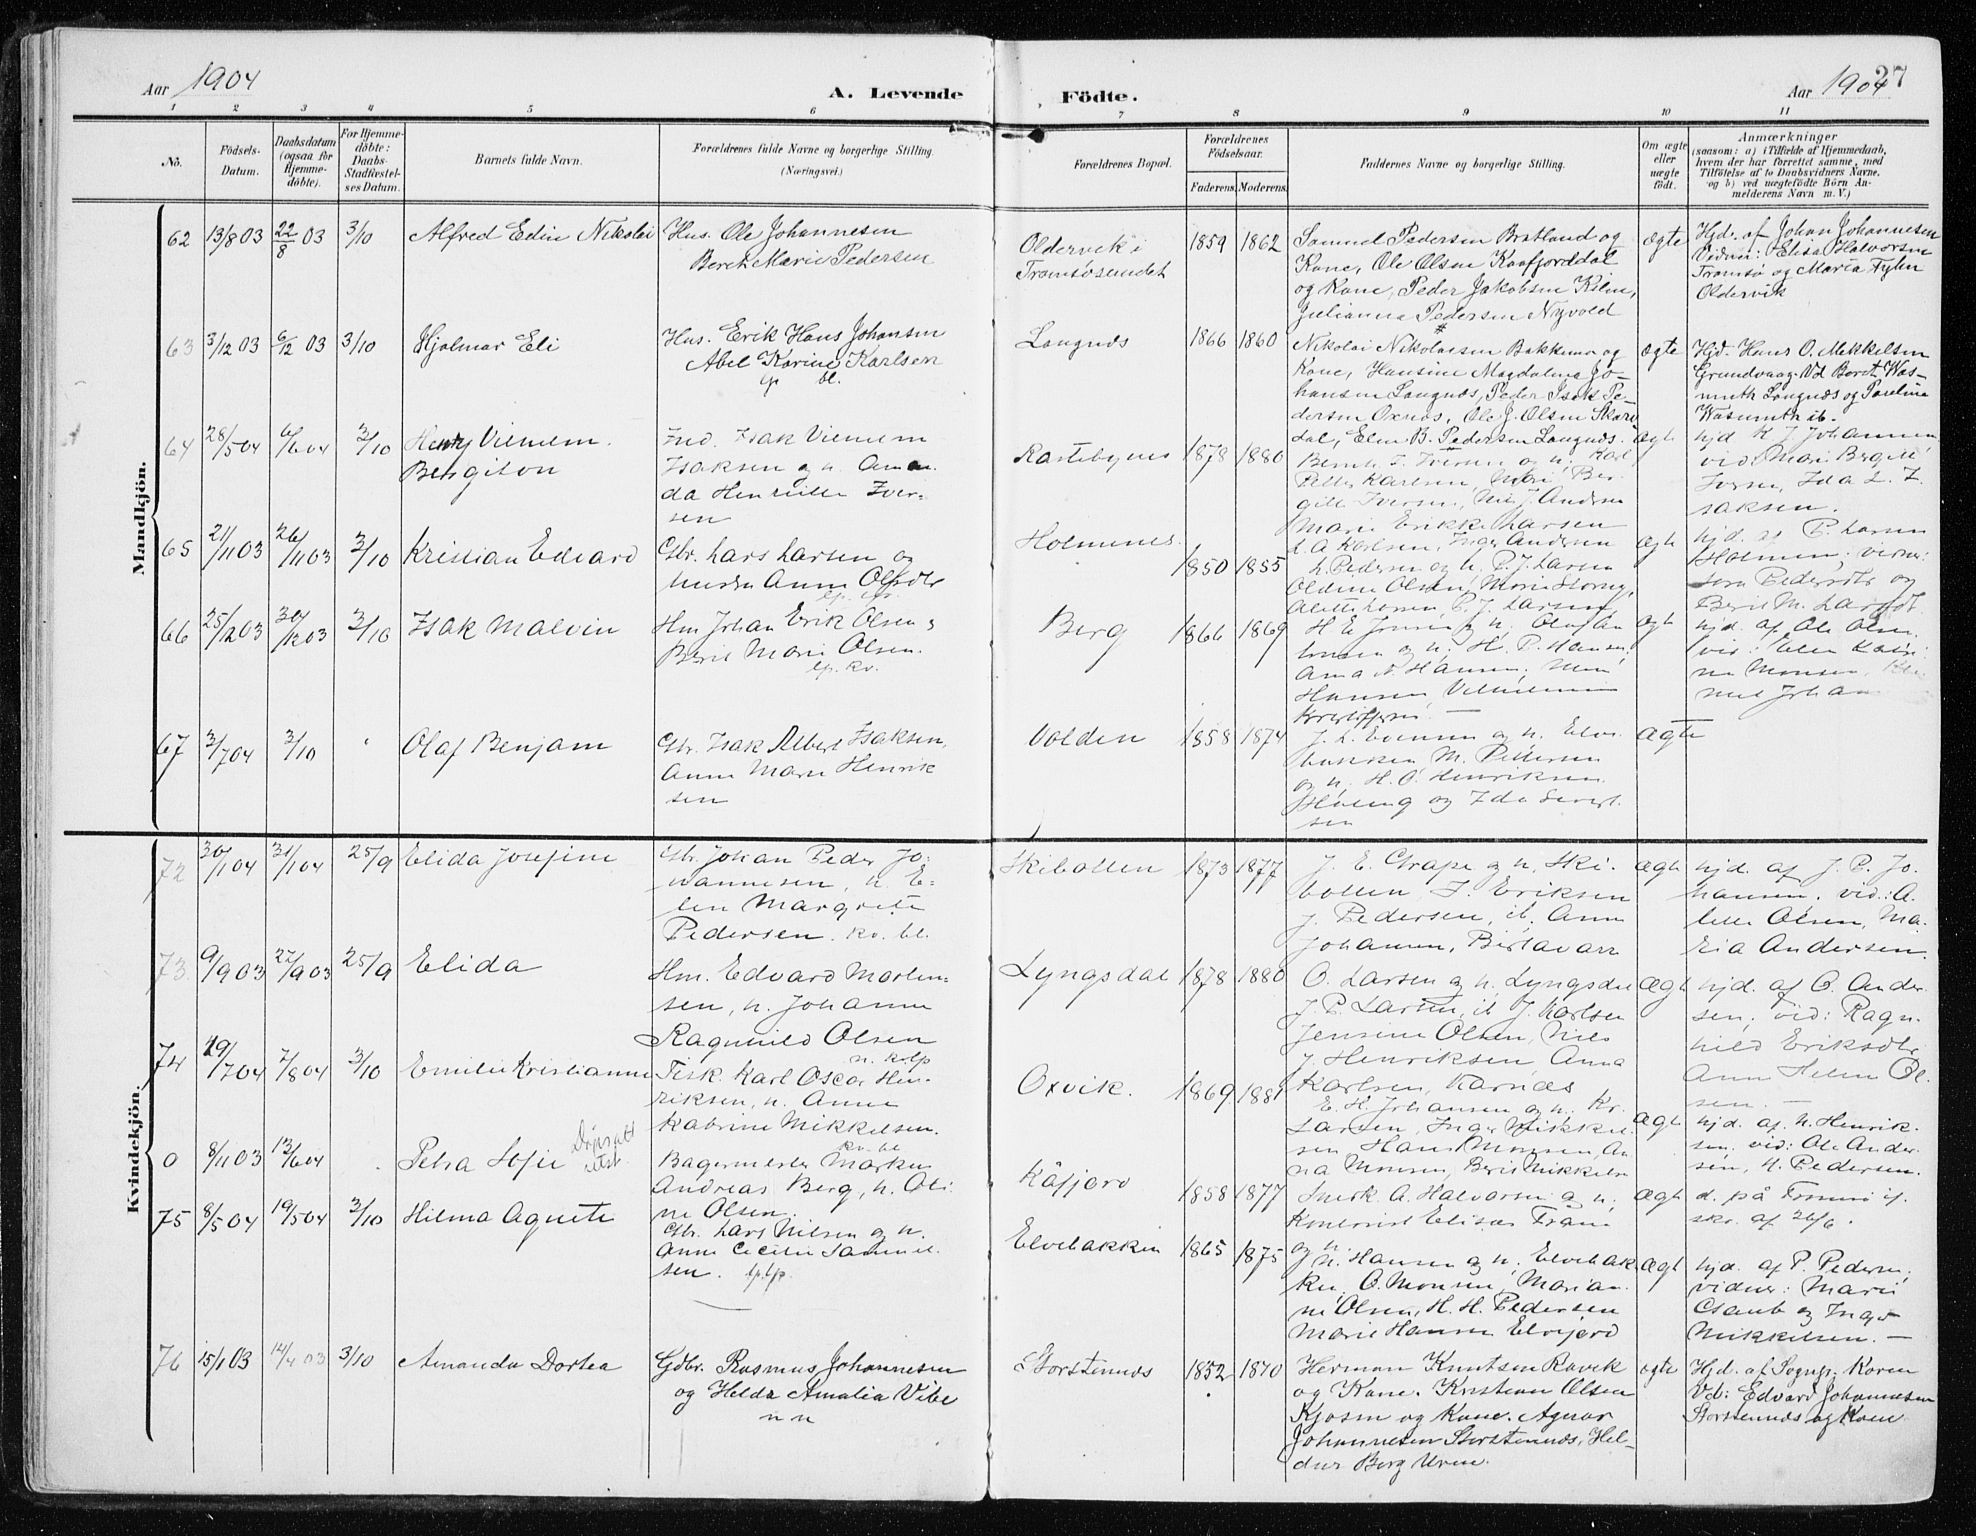 Aar 1904
A. Levende Födte.
Aar 1904
27
1 2 3 4 5 6 7 8 9 10 11
No.
Födsels-
Datum.
Daabsdatum
(ogsaa for
Hjemme-
döbte).
For Hjemme-
döbte:
Daabs-
Stadfæstel-
ses Datum.
Barnets fulde Navn.
Forældrenes fulde Navne og borgerlige Stilling.
(Næringsvei.)
Forældrenes Bopæl.
Forældrenes
Födselsaar.
Faderens. Moderens.
Faddernes Navne og borgerlige Stilling.
Om ægte
eller
uægte
födt.
Anmærkninger
(saasom: a) i Tilfælde af Hjemmedaab,
hvem der har forrettet samme, med
Tilföielse af to Daabsvidners Navne,
og b) ved uægtefödte Börn An-
melderens Navn m. V.)
Mandkjön.
62 13/8 03 22/8 03 3/10 Alfred Edin Nikolai
Hus. Ole Johannesen
Berth Marie Pedersen
Oldervik i
Tromsøsundet
1859 1862
Samuel Pedersen Bratland og
Kone, Ole Olsen Kaafjorddal
og Kone, Peder Jakobsen
Julianna Pedersen Nyvold
ægte
Hjd. af Johan Johannesen
Vidner: Elisa Halvorsen
Tromsø og Maria
Oldervik
63 3/12 03 6/12 03 3/10 Hjalmar Eli
Hus. Erik Hans Johansen
Abel Karine Karlsen
lp bl.
Langnæs
1866 1860
Nikolai Nikolaisen Bakkemo og
Kone, Hansine Magdalena Jo-
hansen Langnæs, Peder Isak Pe-
dersen Oxnæs, Ole J. Olsen Skar-
dal, Elen B. Pedersen Langnæs.
ægte
Hjd. Hans O. Mikkelsen
Grundvaag. Vd Berit Was-
muth Langnæs og Paulina
Wasmuth ib.
64 28/5 04 6/6 04 3/10 Henry
Bergiton
Ind. Isak
Isaksen og h. Aman-
da Henriette Iver-
sen
Rastebynes
1878 1880
Bernh. I. Iversen og h. Karl
Peter Karlsen, Mari Ber-
gitte Iversen, J. Andersen
Marie Erikke Larsen
ægte
hjd K J Johannesen
vid: Mari Bergitte
Iversen, Ida L. I-
saksen.
65 21/11 03 26/11 03 3/10 Kristian Edvard
Gbr. Lars Larsen og
hustru Anne Olsdtr
Holmenes.
1850 1855
L. A Karlsen, Inger Andersen
L. Pedersen og h. P. J. Larsen
Oldine Olsen, Marie
Alette Larsen P. J. Larsen
ægte
hjd. af P. Larsen
Holmen, vidner:
Pedersdtr og
Berit M. Larsdt
66 25/12 03 30/12 03 3/10 Isak Malvin
Hm Johan Erik Olsen og
Beret Marie Olsen.
lp. kv.
Berg
1866 1869
H E Jensen og h. Olaf An-
tonsen og h. H. P. Hansen,
Anna Hansen,
Hansen, Vilhelmine
Kristoffersen. —
ægte
hjd. af Ole Olsen
vid: Elen Katri-
ne Monsen,
Johan
67 3/7 04 3/10 " Olaf Benjam
Gbr. Isak Albert Isaksen,
Anne Marie Henrik
sen
Volden
1858 1874
J. L. Evensen og h. Elve-
bakken M. Pettersen
og h, H. O. Henriksen
og Ida Sivert-
sen
ægte
Kvindekjön.
72 30/1 04 31/1 04 25/9 Elida Josefine
Gbr. Johan Peder Jo-
hannesen, h. E-
len Margrete
Pedersen. kv. bl.
Skibotten
1873 1877
J. E. Grape og h. Ski-
botten, I. Eriksen
J. Pedersen, ib. Anne
Johansen, Birtavarr
ægte
hjd. af J. P. Jo-
hansen, vid: A-
lette Olsen, Ma-
ria Andersen.
73. 9/9 03 27/9 03 25/9 Elida
Hm. Edvard Morten-
sen, h. Johanne
Ragnhild Olsen
n. k. lp
Lyngsdal
1878 1880
O. Larsen og h. Lyngsdal
J. P. Larsen, ib J. Karlsen
Jensine Olsen, Nils
J. Henriksen Anna
Karlsen, Karnæs
ægte
hjd. af O. Ander-
sen, vid: Ragn-
hild Eriksdtr
Anne Helene Ol-
sen. —
74 19/7 04 7/8 04 3/10 Emilie Kristianne
Fisk. Karl Oscar Hen-
riksen, h. Anne
Katrine Mikkelsen.
kv. bl
Oxvik.
1869 1881
E. H. Johansen og h. Kr.
Larsen, Inger Mikkel-
sen Hans Monsen, An-
na Monsen, Berit Mikkelsen
ægte
hjd. af N. Henrik-
sen. vid: Ole Ander-
sen, H. Pedersen.
0 8/11 03 12/6 04 Petra Sofie
Bagermester Markus
Andreas Berg, h. Oli-
ne Olsen.
Kåfjord
1858 1877
Snedk A. Halvorsen og h,
Kontorist Elisæus
og h.
ægte
d. på Tromsø if.
skr. af 26/6.
75 8/5 04 19/5 04 3/10 Hilma Agnete
Gbr. Lars Nilsen og h.
Anne Cecilie Samuel-
sen. lp. lp.
Elvebakken
1865 1875
N. Hansen og h, Elvebak-
ken, O. Monsen, Marian-
ne Olsen, H. H. Pedersen
Marie Hansen
ægte
hjd. af P. Pedersen,
vidner: Marie
og Inger
Mikkelsen. —
76 15/1 03 3/10 Amanda Dortea
Gdbr. Rasmus Johannesen
og Amalia Vibe
n n
Storstennæs
1852 1870
Herman Knutsen Ravik
og Kone. Kristian Olsen
Kjosen og Kone. Agnar
Johannesen Storstennæs, Hel-
Berg Uren.
ægte
Hjd. af Sognepr. Koren
Vd: Edvard Johannesen
Storstennæs og Kone